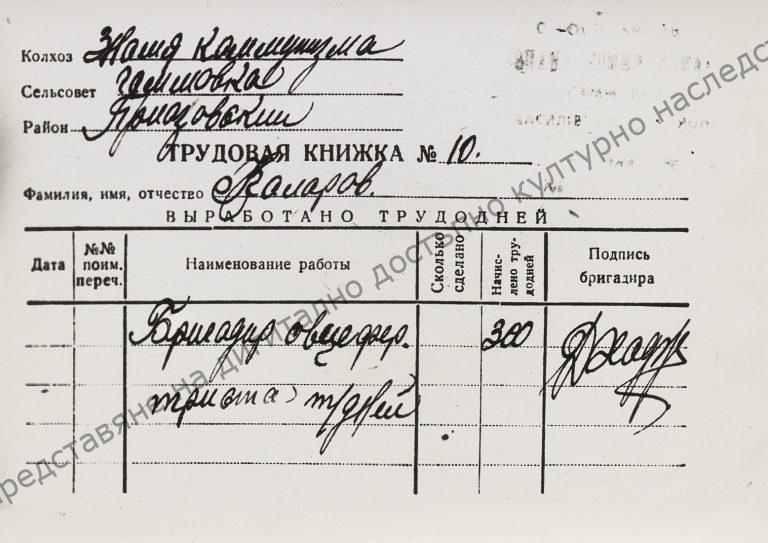 Колхоз Знамя коммунизма
Сельсовет
Район Приазовский
ТРУДОВАЯ КНИЖКА № 10.
Фамилия, имя, отчество
ВЫРАБОТАНО ТРУДОДНЕЙ
Дата
№№ поим. переч.
Наименование работы
Сколько сделано
Начис-
лено тру-
додней
Подпись
бригадира
Бригадир овцефер. 300
триста т/дней
представяне на дигитално достъпно културно наследст